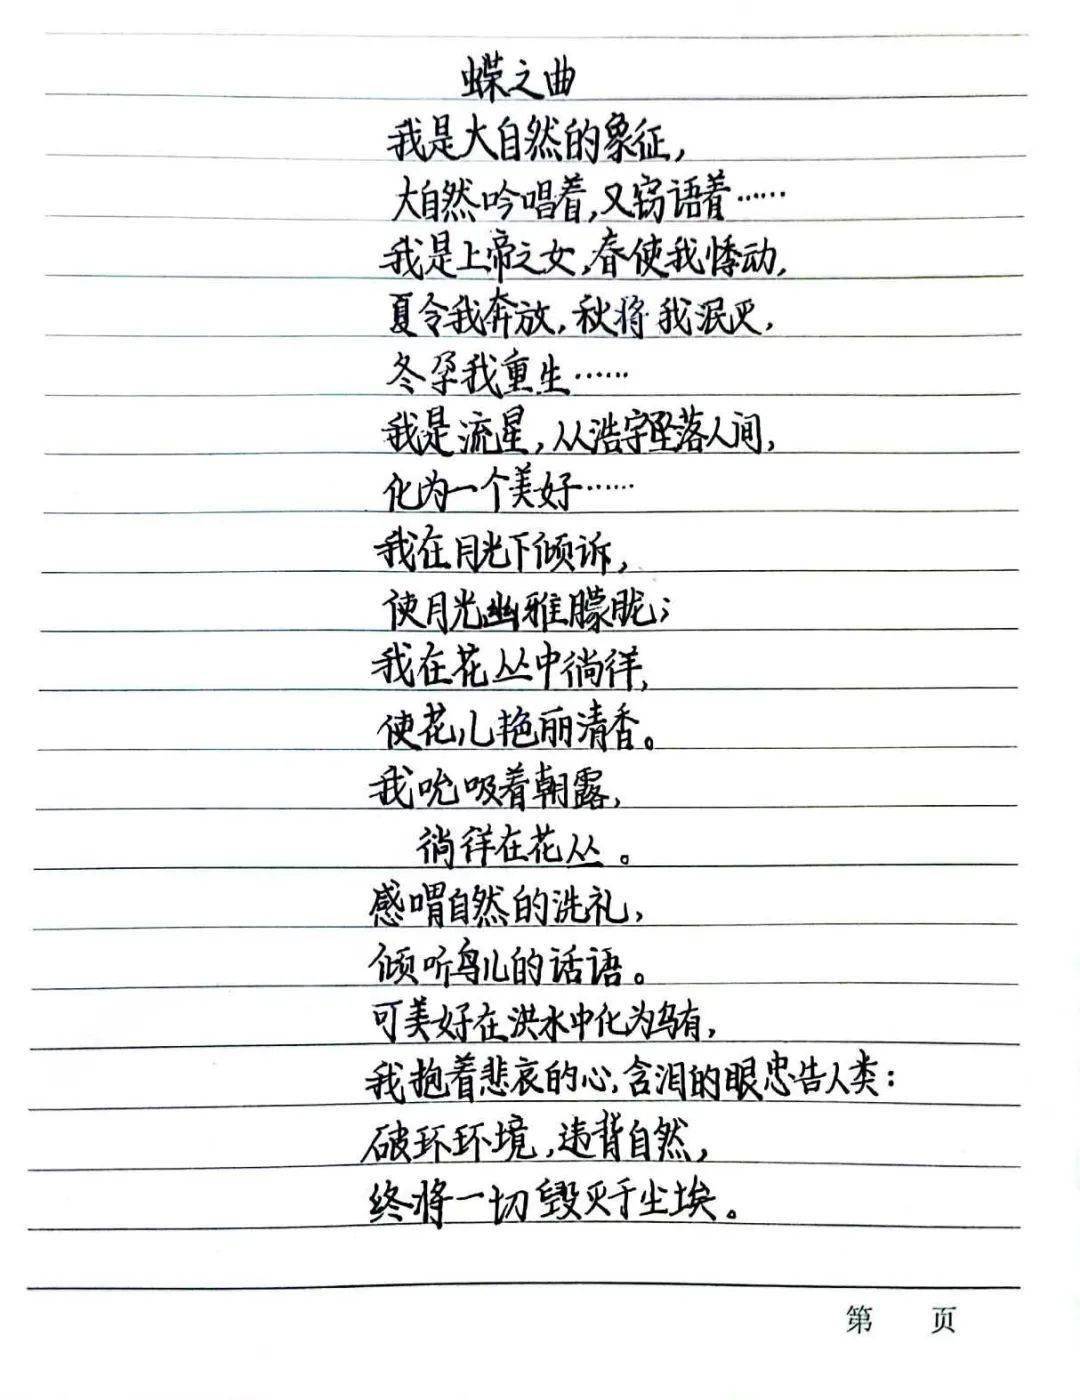 蝶之曲
我是大自然的象征,
大自然吟唱着,又窃语着……
我是上帝之女,春使我悸动,
夏令我奔放,秋将我泯灭,
冬孕我重生……
我是流星,从浩宇坠落人间,
化为一个美好……
我在月光下倾诉,
使月光幽雅朦胧;
我在花丛中徜徉,
使花儿艳丽清香。
我吮吸着朝露,
徜徉在花丛。
感喟自然的洗礼,
倾听鸟儿的话语。
可美好在洪水中化为乌有,
我抱着悲哀的心,含泪的眼忠告人类:
破环环境,违背自然,
终将一切毁灭于尘埃。
第 页